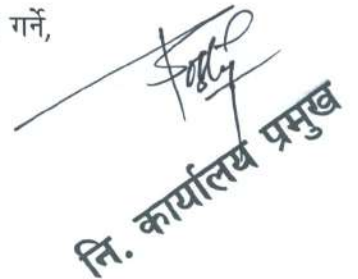 गर्ने,
नि. कार्यालय प्रमुख